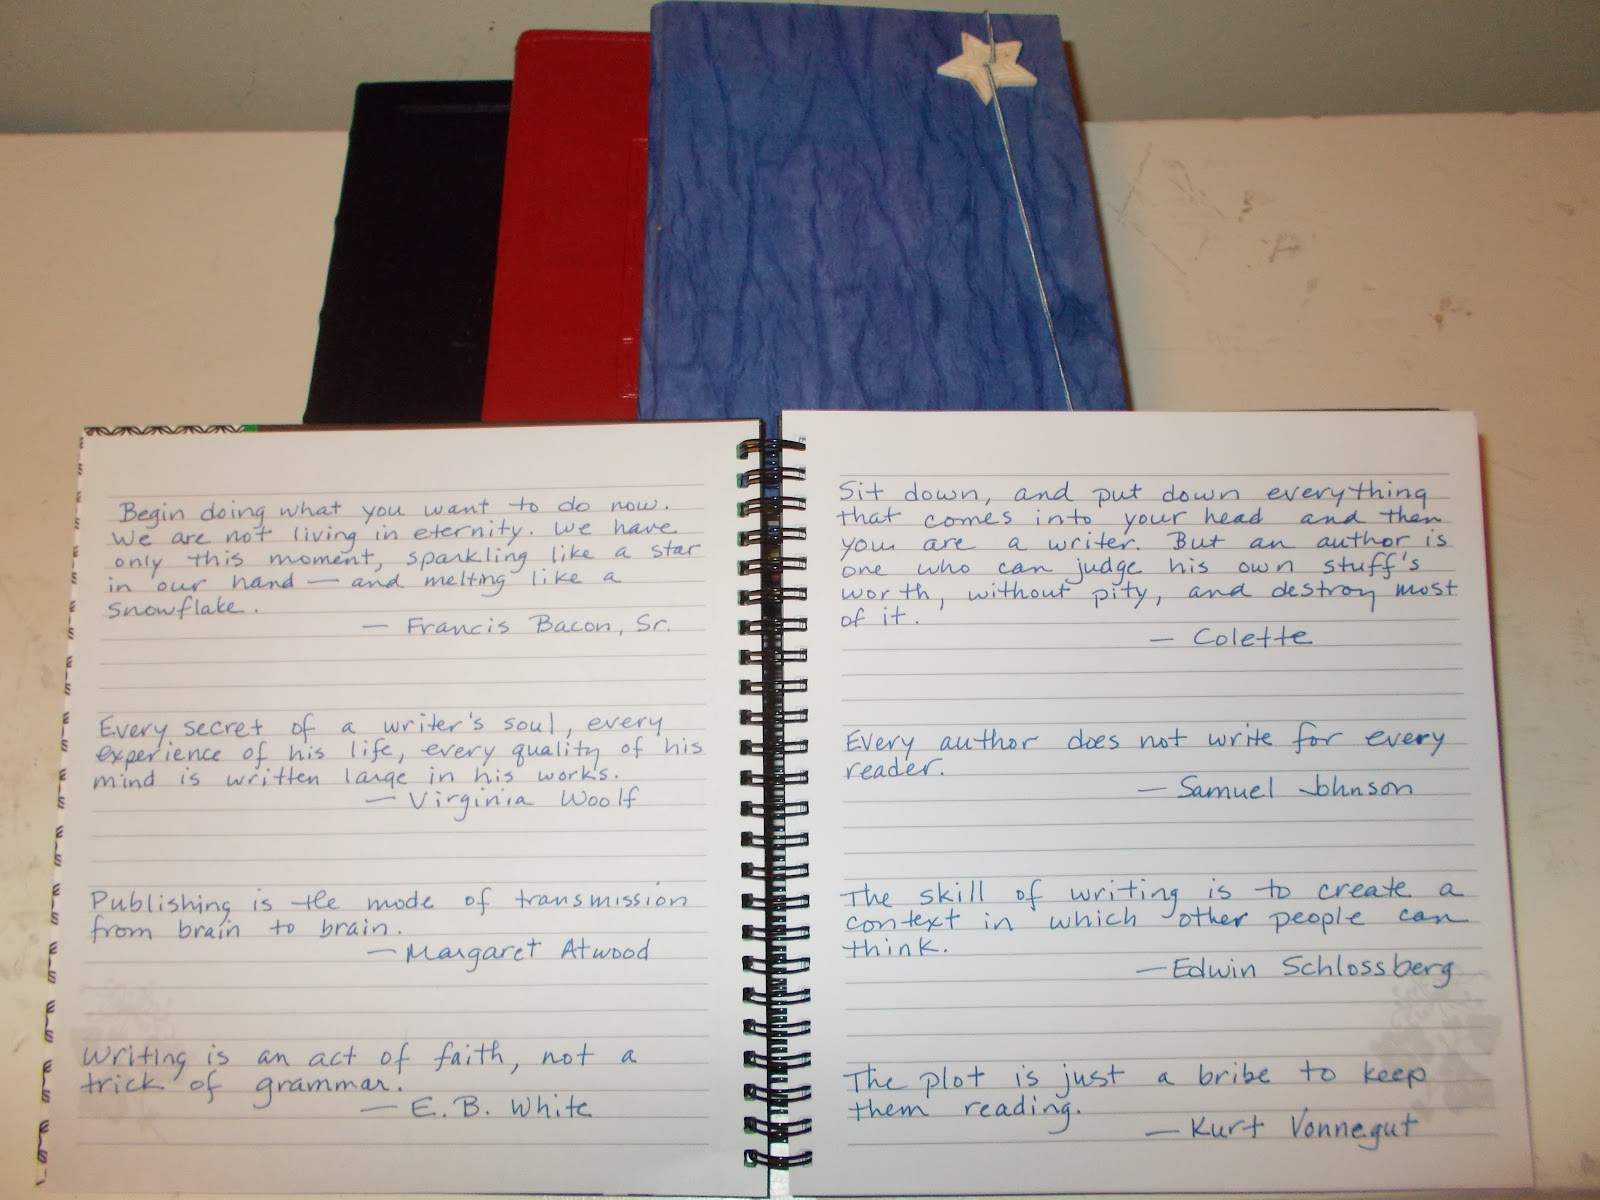 Begin doing what you want to do now.
We are not living in eternity. We have
only this moment, sparkling like a star
in our hand — and melting like a
snowflake.
— Francis Bacon, Sr.
Every secret of a writer's soul, every
experience of his life, every quality of his
mind is written large in his works.
— Virginia Woolf
Publishing is the mode of transmission
from brain to brain.
— Margaret Atwood
Writing is an act of faith, not a
trick of grammar.
— E. B. White
Sit down, and put down everything
that comes into your head and then
you are a writer. But an author is
one who can judge his own stuff's
worth, without pity, and destroy most
of it.
— Colette
Every author does not write for every
reader.
— Samuel Johnson
The skill of writing is to create a
context in which other people can
think.
— Edwin Schlossberg
The plot is just a bribe to keep
them reading.
— Kurt Vonnegut